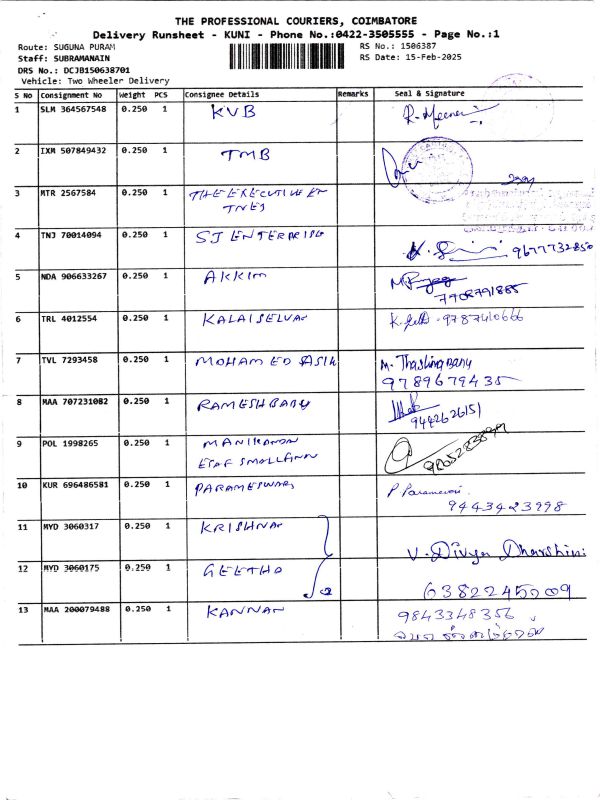 THE PROFESSIONAL COURIERS, COIMBATORE
Delivery Runsheet - KUNI - Phone No.:0422-3505555 - Page No.:1
Route: SUGUNA PURAM
RS No.: 1506387
Staff: SUBRAMANAIN
RS Date: 15-Feb-2025
DRS No.: DCJB150638701
Vehicle: Two Wheeler Delivery
S No Consignment No Weight PCS Consignee Details Remarks Seal & Signature
1 SLM 364567548 0.250 1 KVB R. Meena
2 IXM 507849432 0.250 1 TMB
3 MTR 2567584 0.250 1 THE EXECUTIVE EN
TNEJ
4 TNJ 70014094 0.250 1 SJ ENTERPRISE 9677732850
5 NDA 906633267 0.250 1 AKKIM
7708791885
6 TRL 4012554 0.250 1 KALAISELVAN 9787410666
7 TVL 7293458 0.250 1 MOHAMED ASIK M. Thaslima Banu
9789679435
8 MAA 707231082 0.250 1 RAMESHBABU
9442626151
9 POL 1998265 0.250 1 MANIKANDAN
ESAF SMALL FINN
10 KUR 696486581 0.250 1 PARAMESWARI P Parameswari
9443423998
11 MYD 3060317 0.250 1 KRISHNA V. Divya Dharshini
12 MYD 3060175 0.250 1 GEETHA
6382245009
13 MAA 200079488 0.250 1 KANNAN 9843348356